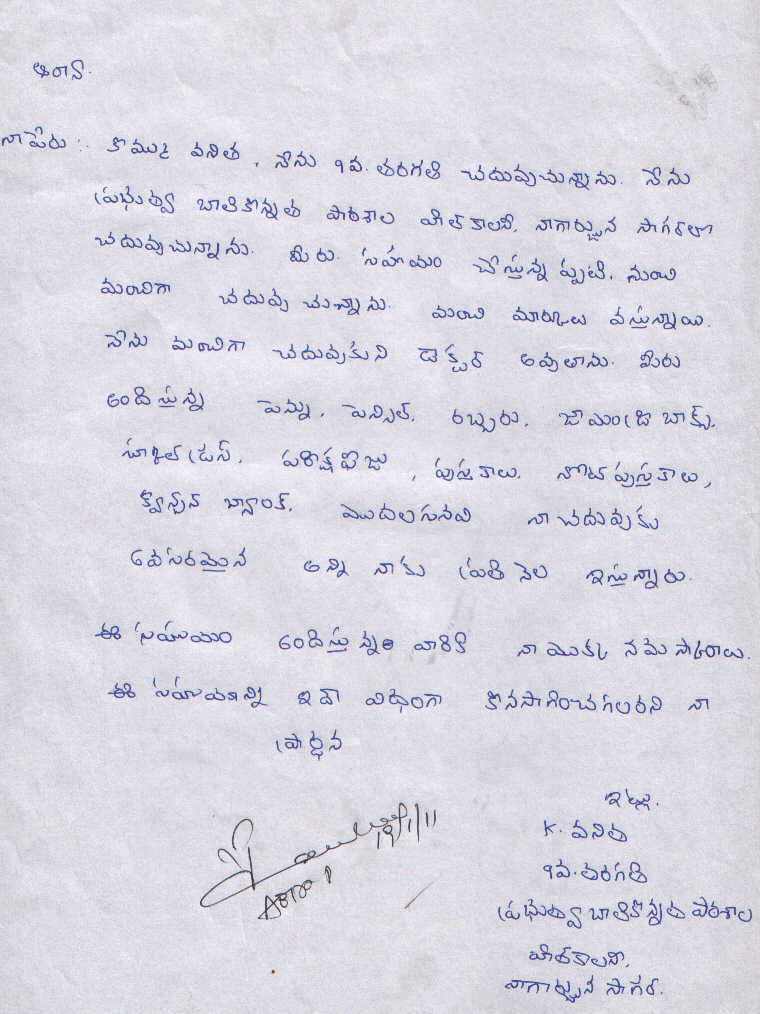 నా పేరు :. కొమ్ము వనిత. నేను 9వ. తరగతి చదువుచున్నాను. నేను
ప్రభుత్వ బాలికొన్నత పాఠశాల హిల్ కాలనీ. నాగార్జున సాగర్‌లో
చదువుచున్నాను. మీరు. సహయం చేస్తున్న ప్పటి. నుంచి
మంచిగా చదువు చున్నాను. మంచి మార్కులు వస్తున్నాయి.
నేను మంచిగా చదువుకుని డాక్టర్ అవుతాను. మీరు
అందిస్తున్న పెన్ను, పెన్సిల్. రబ్బరు. జామంట్రి బాక్స్.
పరిక్షఫిజు, పుస్తకాలు. నోట్ పుస్తకాలు,
క్వొశ్చన్ బ్యాంక్. మొదలగునవి నా చదువుకు
అవసరమైన అన్ని నాకు ప్రతి నెల ఇస్తున్నారు.
ఈ సహయం అందిస్తున్న వారికి నా యొక్క నమస్కారాలు.
ఈ సహయాన్ని ఇదే విధంగా కొనసాగించగలరని నా
ప్రార్ధన
19/1/11
ఇట్లు.
K. వనిత
9వ. తరగతి
ప్రభుత్వ బాలికొన్నత పాఠశాల
హిల్‌కాలనీ,
నాగార్జున సాగర్.